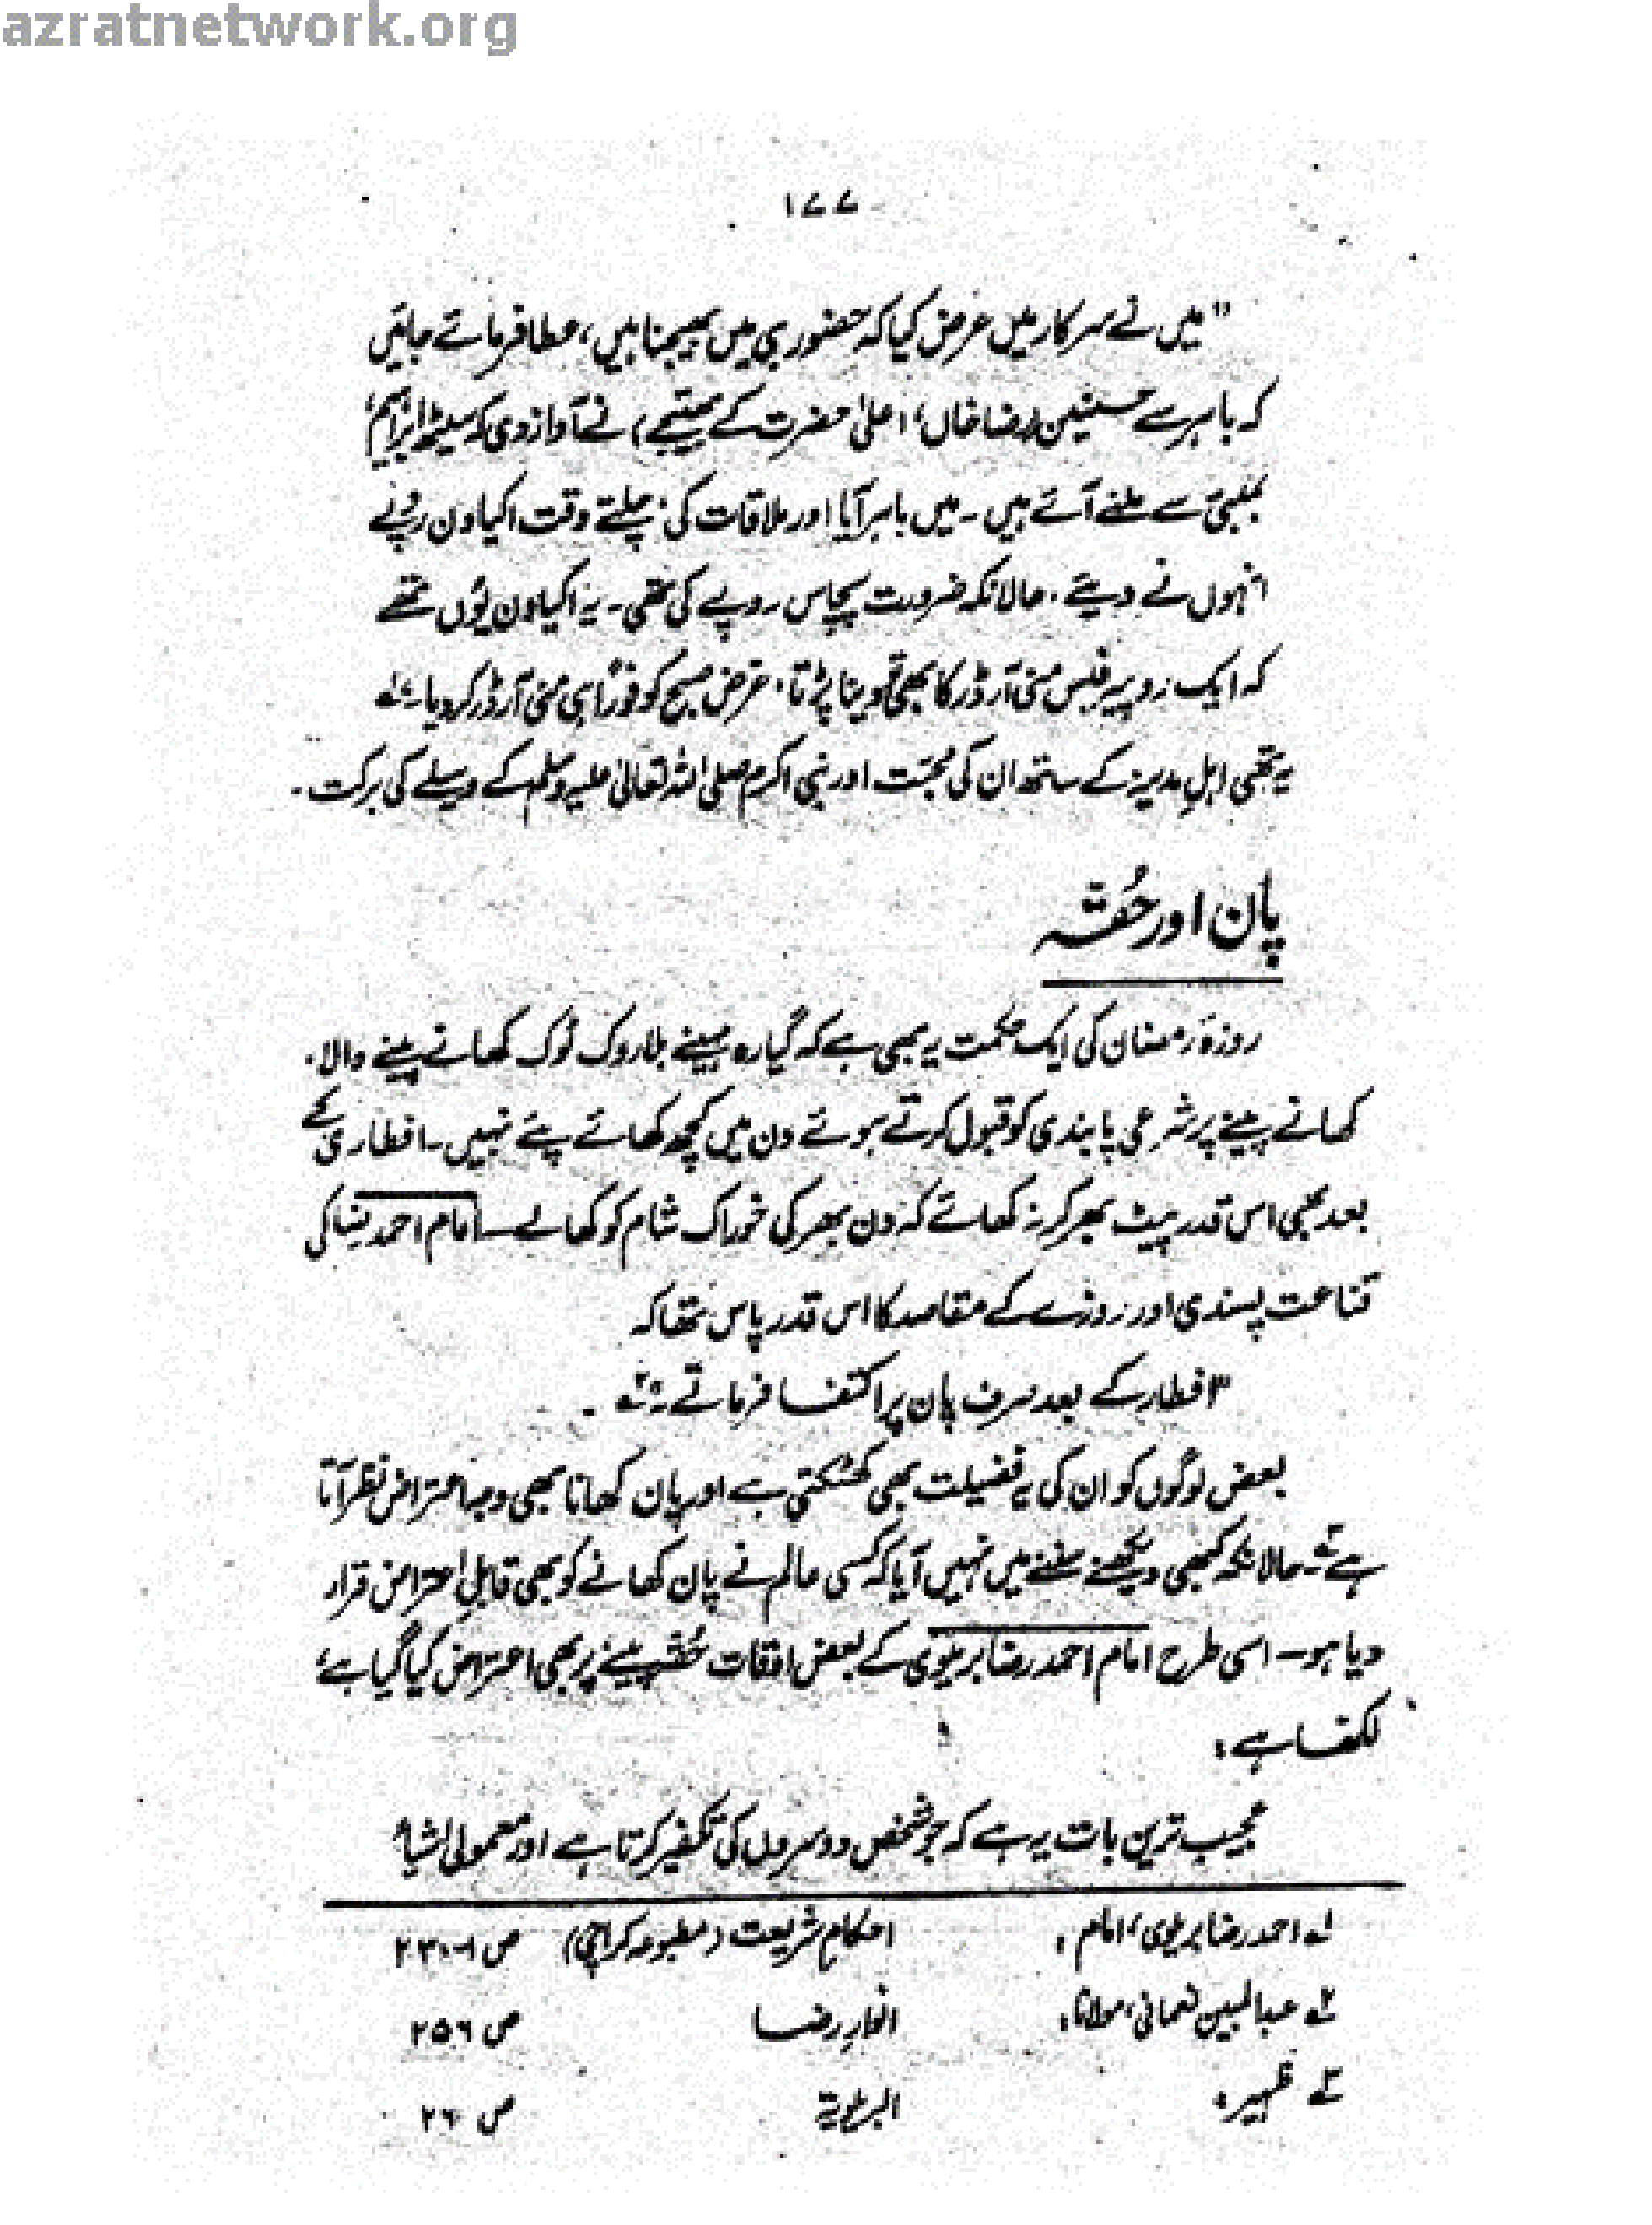 azratnetwork.org
۱۷۷
"میں نے سرکار میں عرض کیا کہ حضور ہی میں بھیجنا ہیں، عطا فرمائے جائیں
کہ باہر سے حسنین رضا خاں، (اعلیٰ حضرت کے بھتیجے) نے آواز دی کہ سیٹھ ابراہیم
بمبئی سے ملنے آئے ہیں۔ میں باہر آیا اور ملاقات کی: چلتے وقت اکیاون روپے
انہوں نے دیئے۔ حالانکہ ضرورت پچاس روپے کی تھی۔ یہ اکیاون یوں تھے
کہ ایک روپیہ فیس منی آرڈر کا بھی تو دینا پڑتا۔ غرض صبح کو فوراً ہی منی آرڈر کر دیا۔ ۱ے
یہ تھی اہلِ مدینہ کے ساتھ ان کی محبت اور نبی اکرم صلی اللہ تعالیٰ علیہ وسلم کے وسیلے کی برکت۔
پان اور حُقّہ
روزۂ رمضان کی ایک حکمت یہ بھی ہے کہ گیارہ مہینے بلا روک ٹوک کھانے پینے والا،
کھانے پینے پر شرعی پابندی کو قبول کرتے ہوئے دن میں کچھ کھائے پئے نہیں۔ افطاری کے
بعد بھی اس قدر پیٹ بھر کر نہ کھائے کہ دن بھر کی خوراک شام کو کھا لے۔ امام احمد رضا کی
قناعت پسندی اور روزے کے مقاصد کا اس قدر پاس تھا کہ
"افطار کے بعد صرف پان پر اکتفا فرماتے۔" ۲ے
بعض لوگوں کو ان کی یہ فضیلت بھی کھٹکتی ہے اور پان کھانا بھی وجہ اعتراض نظر آتا
ہے ۳ے۔ حالانکہ کبھی دیکھنے سننے میں نہیں آیا کہ کسی عالم نے پان کھانے کو بھی قابلِ اعتراض قرار
دیا ہو۔ اسی طرح امام احمد رضا بریلوی کے بعض اوقات حُقہ پینے پر بھی اعتراض کیا گیا ہے،
لکھتا ہے:
عجیب ترین بات یہ ہے کہ جو شخص دوسروں کی تکفیر کرتا ہے اور معمولی اشیاء
۱ے احمد رضا بریلوی، امام: احکامِ شریعت (مطبوعہ کراچی) ص ۱-۲۳۰
۲ے عبد المبین نعمانی، مولانا: انوارِ رضا ص ۲۵۶
۳ے ظہیر: البریلویۃ ص ۲۶